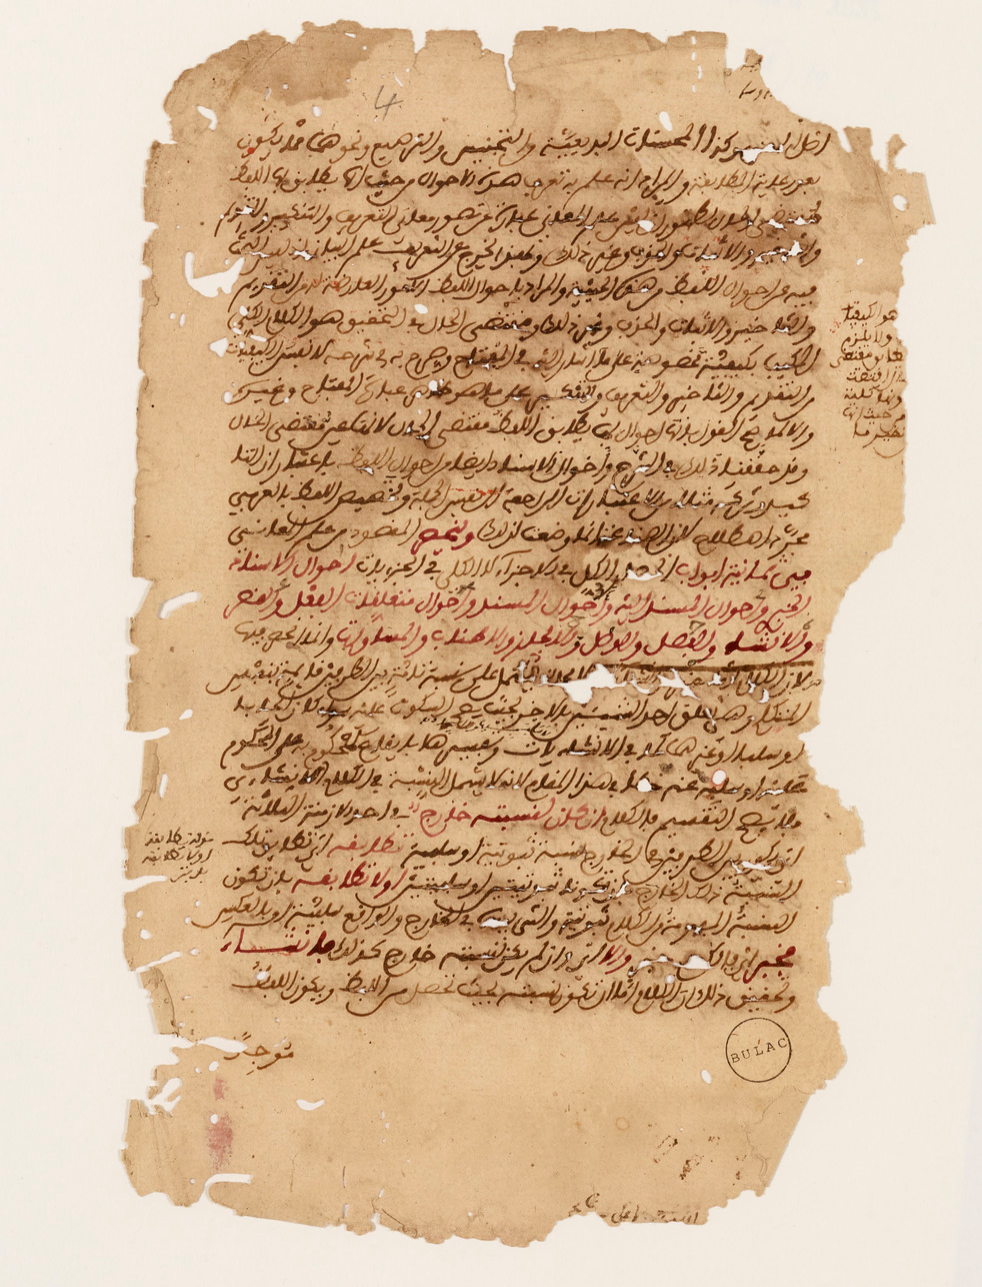 كذا المحسنات البديعية من التجنيس والترصيع ونحوهما مما يكون
بعد رعاية المطابقة والمراد انه علم به تعرف هذه الاحوال من حيث انها يطابق بها اللفظ
لمقتضى الحال لظهور ان ليس علم المعاني عبارة عن تصور معاني التعريف والتنكير والتقديم
والتاخير والاثبات والحذف وغير ذلك وبهذا يخرج عن التعريف علم البيان اذ ليس البحث
فيه عن احوال اللفظ من هذه الحيثية والمراد باحوال اللفظ الامور العارضة له من التقديم
والتاخير والاثبات والحذف وغير ذلك ومقتضى الحال في التحقيق هو الكلام الكلي
المتكيف بكيفية مخصوصة على ما اشار اليه في المفتاح وصرح به في شرحه لا نفس الكيفيات
من التقديم والتاخير والتعريف والتنكير على ما هو ظاهر عبارة المفتاح وغيره
والا لما صح القول بانها احوال بها يطابق اللفظ مقتضى الحال لانها عين مقتضى الحال
وقد حققنا ذلك في الشرح واحوال الاسناد ايضا من احوال اللفظ باعتبار ان التا
كيد وتركه مثلا من الاعتبارات الراجعة الى نفس الجملة وتخصيص اللفظ بالعربي
مجرد اصطلاح لان الصناعة انما وضعت لذلك وينحصر المقصود من علم المعاني
في ثمانية ابواب انحصار الكل في الاجزاء لا الكلي في الجزءيات احوال الاسناد
الخبري واحوال المسند اليه واحوال المسند واحوال متعلقات الفعل والقصر
والانشاء والفصل والوصل والايجاز والاطناب والمساواة وانما انحصر فيها
لان الكلام يشتمل على نسبة تامة بين الطرفين قايمة بنفس
المتكلم وهو تعلق احد الشيئين بالاخر بحيث يصح السكوت عليه سواء كان ايجابا
او سلبا او غيرهما كما في الانشاءيات وتفسيرها بايقاع المحكوم به على المحكوم
عليه او سلبه عنه خطا في هذا المقام لانه لا يشمل النسبة في الكلام الانشاءي
فلا يصح التقسيم فالكلام ان كان لنسبته خارج في احد الازمنة الثلاثة
اي يكون بين الطرفين في الخارج نسبة ثبوتية او سلبية تطابقه اي تطابق تلك
النسبة ذلك الخارج بان يكونا ثبوتيتين او سلبيتين او لا تطابقه بان تكون
النسبة المفهومة من الكلام ثبوتية والتي في الخارج والواقع سلبية او بالعكس
فخبر اي فالكلام خبر والا اي وان لم يكن لنسبته خارج كذلك فانشاء
وتحقيق ذلك ان الكلام اما ان تكون نسبته بحيث تحصل من اللفظ ويكون اللفظ
موجدا
4
هو الكيفية
ولا يلزم
كلية
من حيث انها
BULAC